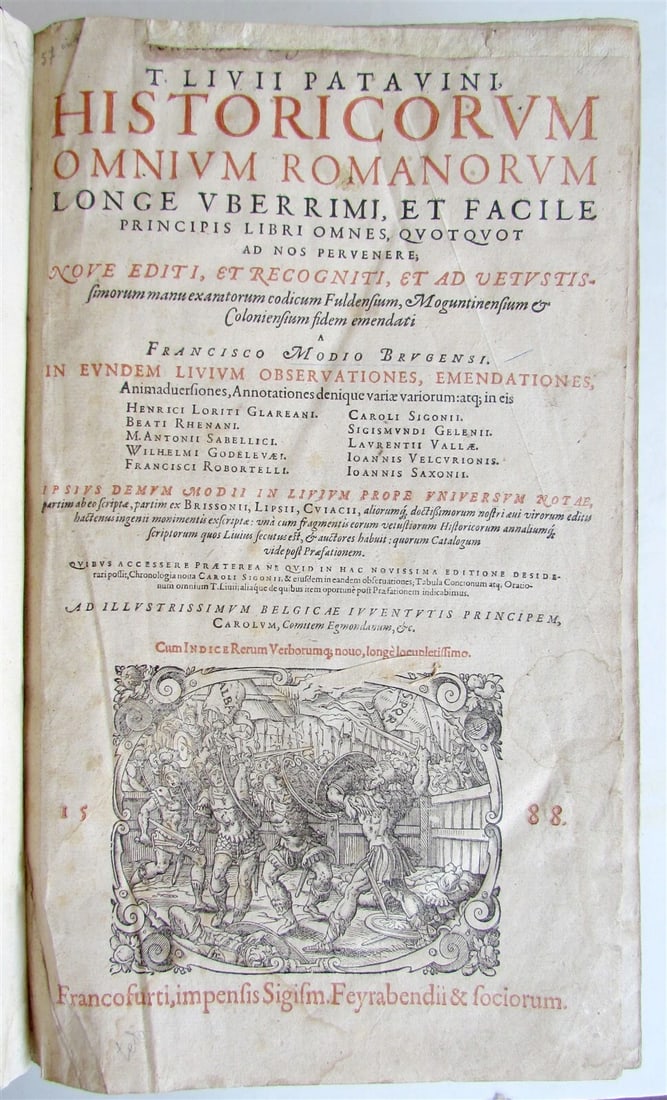 T. LIVII PATAVINI,
HISTORICORVM
OMNIVM ROMANORVM
LONGE VBERRIMI, ET FACILE
PRINCIPIS LIBRI OMNES, QVOTQVOT
AD NOS PERVENERE;
NOVE EDITI, ET RECOGNITI, ET AD VETVSTIS-
simorum manu exaratorum codicum Fuldensium, Moguntinensium &
Coloniensium fidem emendati
A
FRANCISCO MODIO BRVGENSI.
IN EVNDEM LIVIVM OBSERVATIONES, EMENDATIONES,
Animaduersiones, Annotationes denique variæ variorum: atq; in eis
HENRICI LORITI GLAREANI.
BEATI RHENANI.
M. ANTONII SABELLICI.
WILHELMI GODELEVÆI.
FRANCISCI ROBORTELLI.
CAROLI SIGONII.
SIGISMVNDI GELENII.
LAVRENTII VALLÆ.
IOANNIS VELCVRIONIS.
IOANNIS SAXONII.
IPSIVS DEMVM MODII IN LIVIVM PROPE VNIVERSVM NOTAE,
partim ab eo scriptæ, partim ex BRISSONII, LIPSII, CVIACII, aliorumq́; doctissimorum nostri æui virorum editis
hactenus ingenii monimentis exscriptæ: vnà cum fragmentis eorum vetustiorum Historicorum annaliumq́;
scriptorum quos Liuius secutus est, & auctores habuit: quorum Catalogum
vide post Præfationem.
QVIBVS ACCESSERE PRÆTEREA NE QVID IN HAC NOVISSIMA EDITIONE DESIDE-
rari possit, Chronologia noua CAROLI SIGONII, & eiusdem in eandem obseruationes; Tabula Concionum atq; Oratio-
num omnium T. Liuii; aliaque de quibus item oportunè post Præfationem indicabimus.
AD ILLVSTRISSIMVM BELGICAE IVVENTVTIS PRINCIPEM,
CAROLVM, Comitem Egmondanum, &c.
Cum INDICE Rerum Verborumq; nouo, longè locupletissimo.
ALBA
SPQR
15 88.
Francofurti, impensis Sigism. Feyrabendii & sociorum.